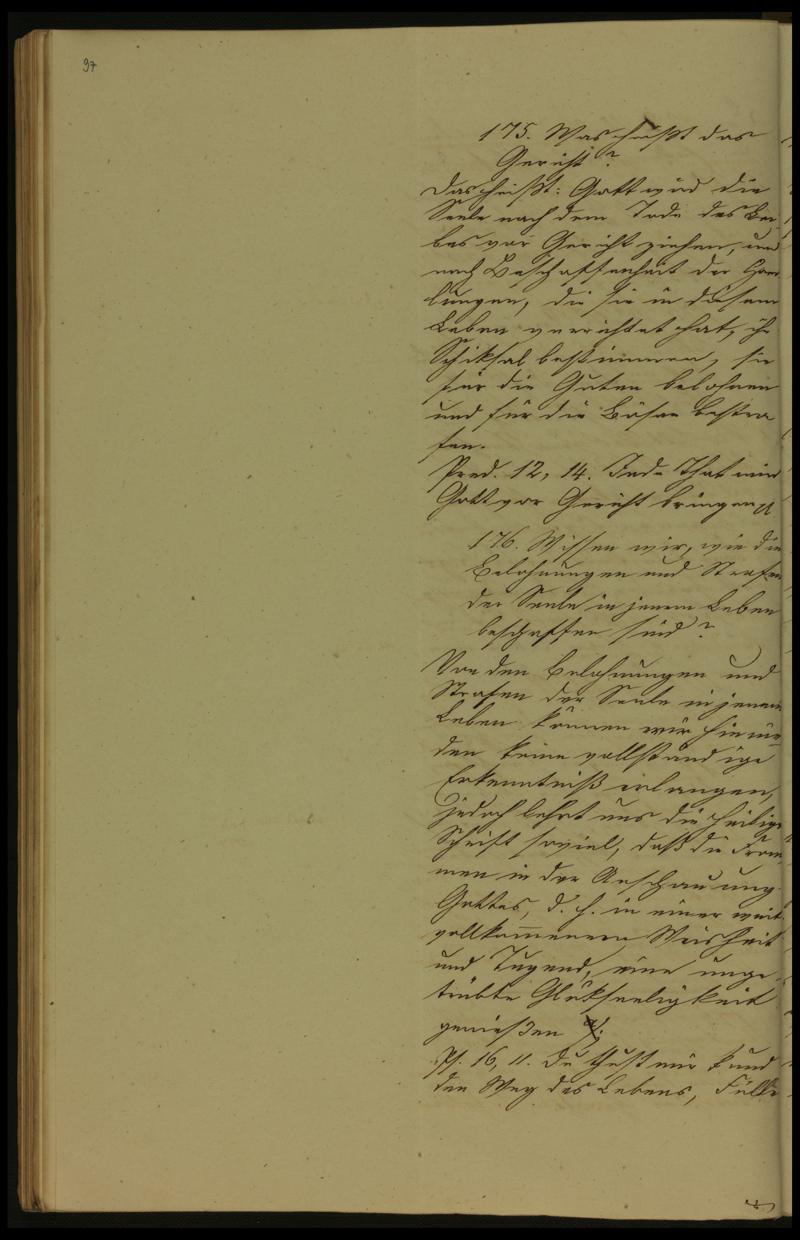 97
175. Was heißt das
Gericht?
Das heißt: Gott wird die
Seele nach dem Tode des Lei-
bes vor Gericht ziehen, und
nach Beschaffenheit der Han
lungen, die sie in diesem
Leben verrichtet hat, ihr
Schiksal bestimmen, sie
für die Guten belohnen
und für die Bösen bestra
fen.
Pred. 12, 14. Jede That wird
Gott vor Gericht bringen
176. Wissen wir, wie die
Belohnungen und Strafen
der Seele in jenem Leben
beschaffen sind?
Von den Belohnungen und
Strafen der Seele in jenem
Leben können wir hienie-
den keine vollständige
Erkenntniß erlangen,
jedoch lehrt uns die heilige
Schrift soviel, daß die From
men in der Anschauung
Gottes, d. h. in einer weit
vollkom̅enern Weisheit
und Tugend, eine unge-
trübte Glükseeligkeit
genießen
Ps. 16, 11. Du thust mir kund
den Weg des Lebens, Fülle